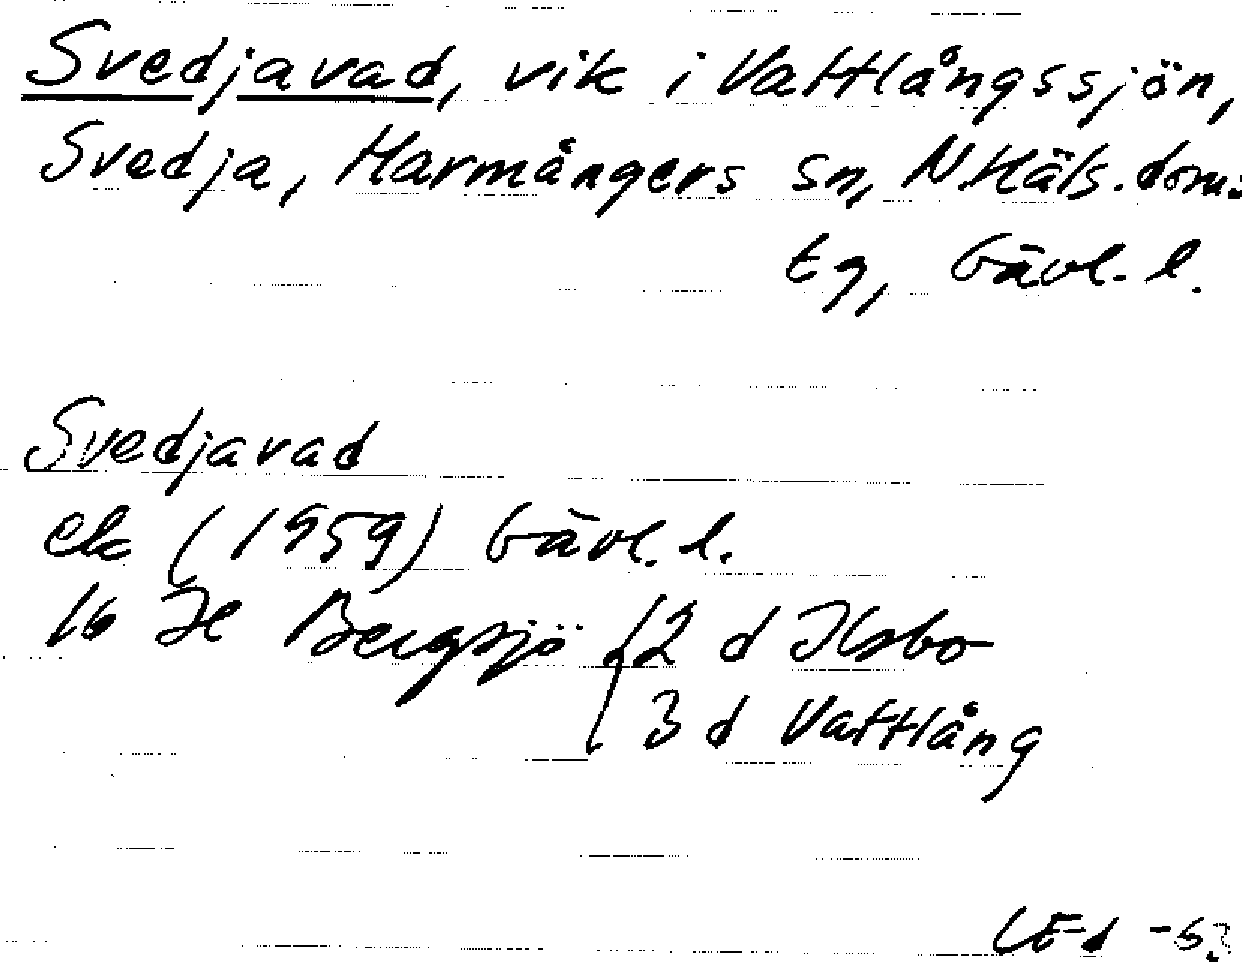 Svedjavad, vik i Vattlångssjön,
Svedja, Harmångers sn, N. Häls. doms.
tg, Gävl. l.
Svedjavad
ek (1959) Gävl. l.
16 H Bergsjö { 2 d Ilsbo
3 d Vattlång